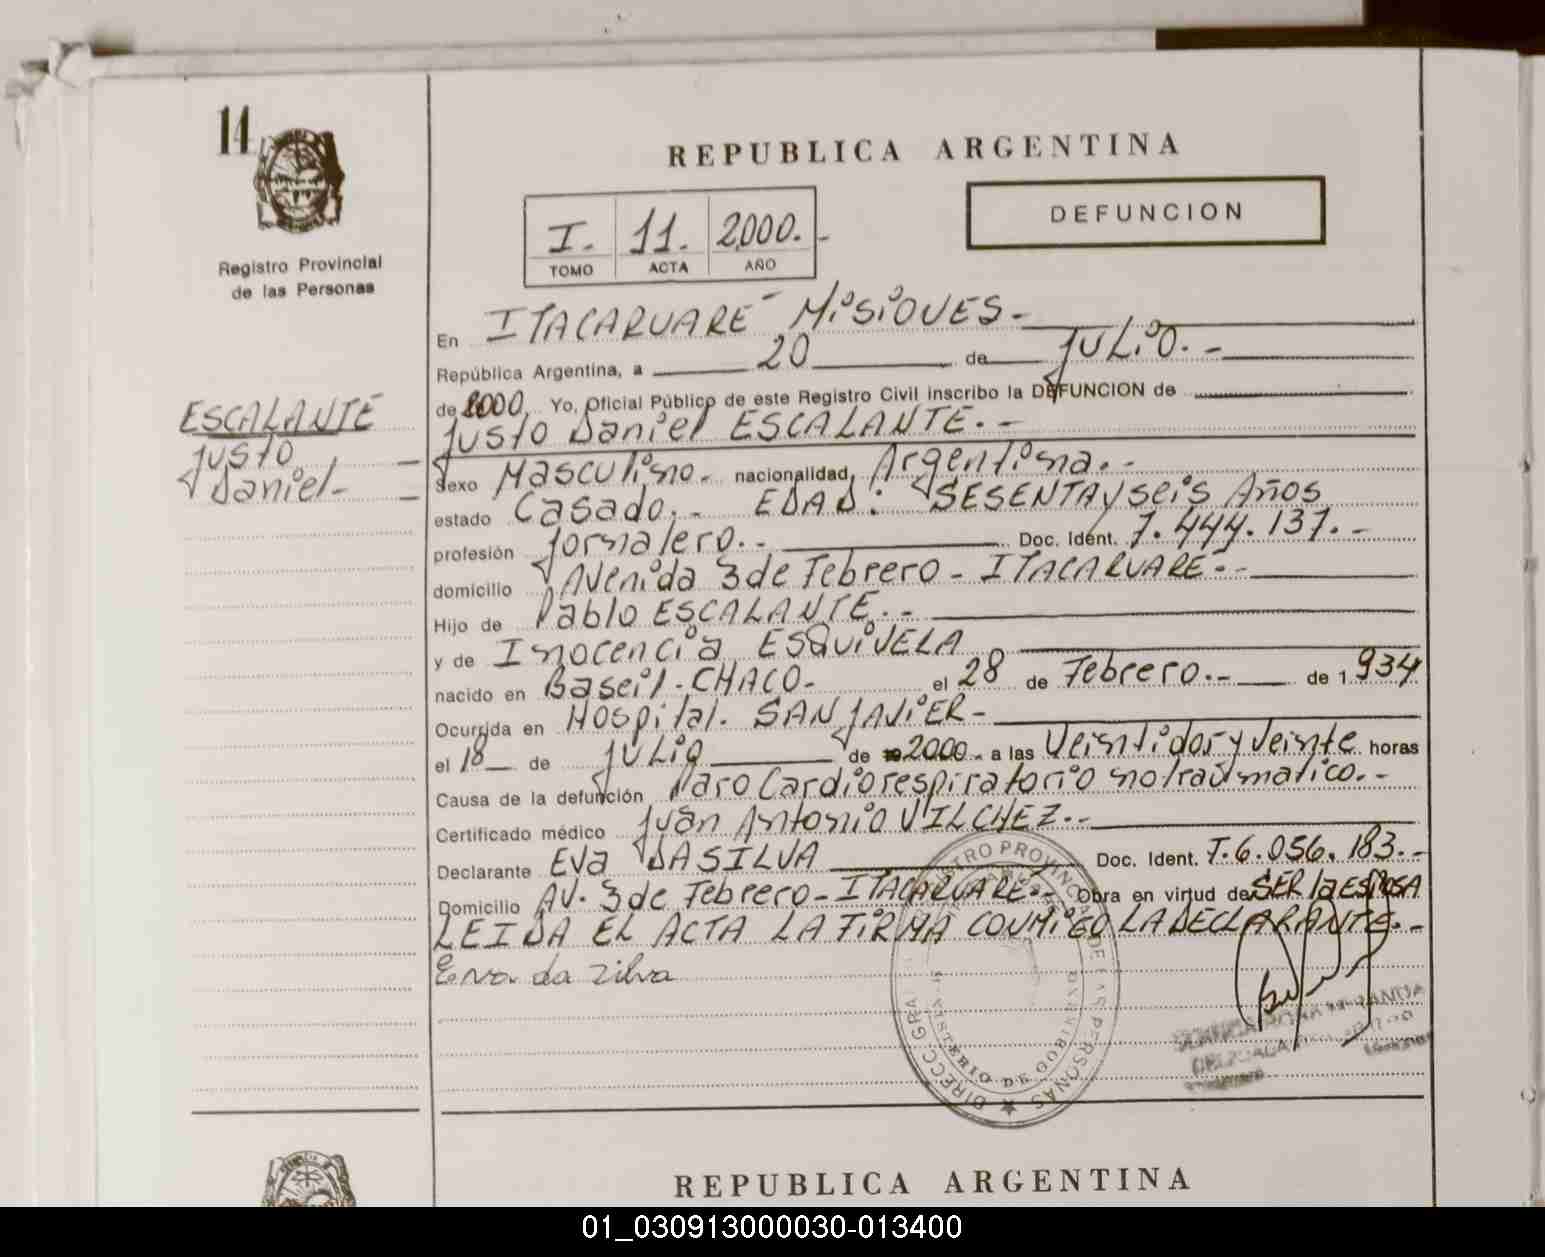 14
REPUBLICA ARGENTINA
I. 11. 2000.-
TOMO ACTA AÑO
DEFUNCION
Registro Provincial
de las Personas
ESCALANTE
Justo
Daniel-
En ITACARUARE MISIONES.-
República Argentina, a 20 de JULIO.-
de 2000. Yo, Oficial Público de este Registro Civil inscribo la DEFUNCION de
Justo Daniel ESCALANTE.-
Sexo Masculino.- nacionalidad Argentina.-
estado Casado.- EDAD: SESENTA y seis Años
profesión Jornalero.- Doc. Ident. 7.444.137.-
domicilio Avenida 3 de Febrero - ITACARUARE.-
Hijo de Pablo ESCALANTE.-
y de Inocencia ESQUIVELA
nacido en Baseil - CHACO- el 28 de Febrero.- de 1.934
Ocurrida en Hospital. SAN JAVIER-
el 18 de JULIO de 2000.- a las Veintidos y Veinte horas
Causa de la defunción Paro Cardiorespiratorio no traumatico.-
Certificado médico Juan Antonio VILCHEZ.-
Declarante Eva DA SILVA Doc. Ident. T.6.056.183.-
Domicilio AV. 3 de Febrero - ITACARUARE.- Obra en virtud de SER la ESPOSA
LEIDA EL ACTA LA FIRMA CONMIGO LA DECLARANTE.-
Eva da Zilva
REPUBLICA ARGENTINA
01_030913000030-013400